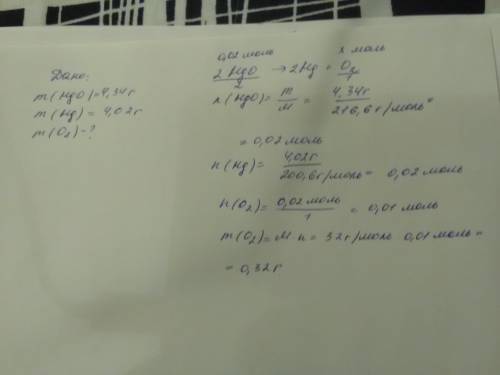 Дано:
m(HgO)=4,34г
m(Hg)=4,02г
m(O₂)-?
0,02 моль x моль
2HgO → 2Hg + O₂
2
n(HgO)= m/M = 4,34г/216,6г/моль =
= 0,02 моль
n(Hg)= 4,02г/200,6г/моль = 0,02 моль
n(O₂)= 0,02 моль/1 = 0,01 моль
m(O₂)= M n = 32г/моль 0,01 моль =
= 0,32г